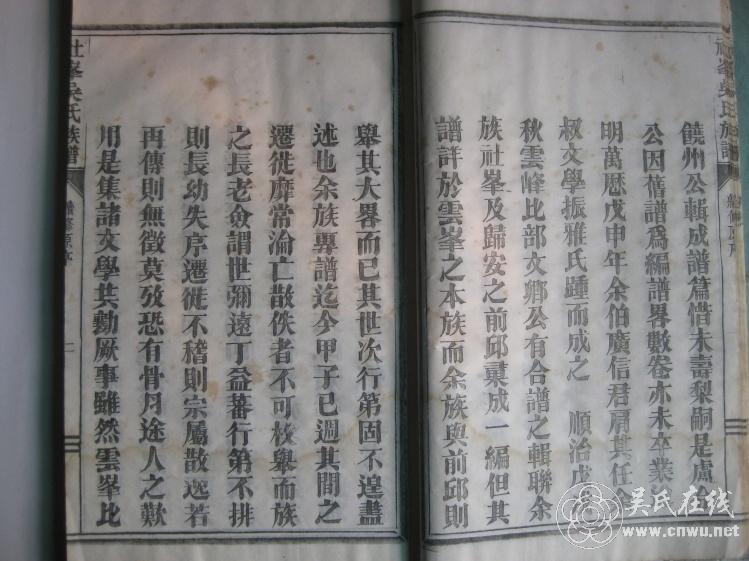 社峯吳氏族譜
饒州公輯成譜篇惜未壽梨嗣是盧
公因舊譜爲編譜畧數卷亦未卒業
明萬歷戊申年余伯廣信君肩其任余
叔文學振雅氏踵而成之 順治戊
秋雲峰比部文卿公有合譜之輯聯余
族社峯及歸安之前邱彙成一編但其
譜詳於雲峯之本族而余族與前邱則
舉其大畧而已其世次行第固不遑盡
述也余族專譜迄今甲子已週其間之
遷徙靡常淪亡散佚者不可枚舉而族
之長老僉謂世彌遠丁益蕃行第不排
則長幼失序遷徙不稽則宗屬散逸若
再傳則無徵莫攷恐有骨月途人之歎
用是集諸文學共勷厥事雖然雲峯比
社峯吳氏族譜
續修原序
一
吴氏在线
www.cnwu.net